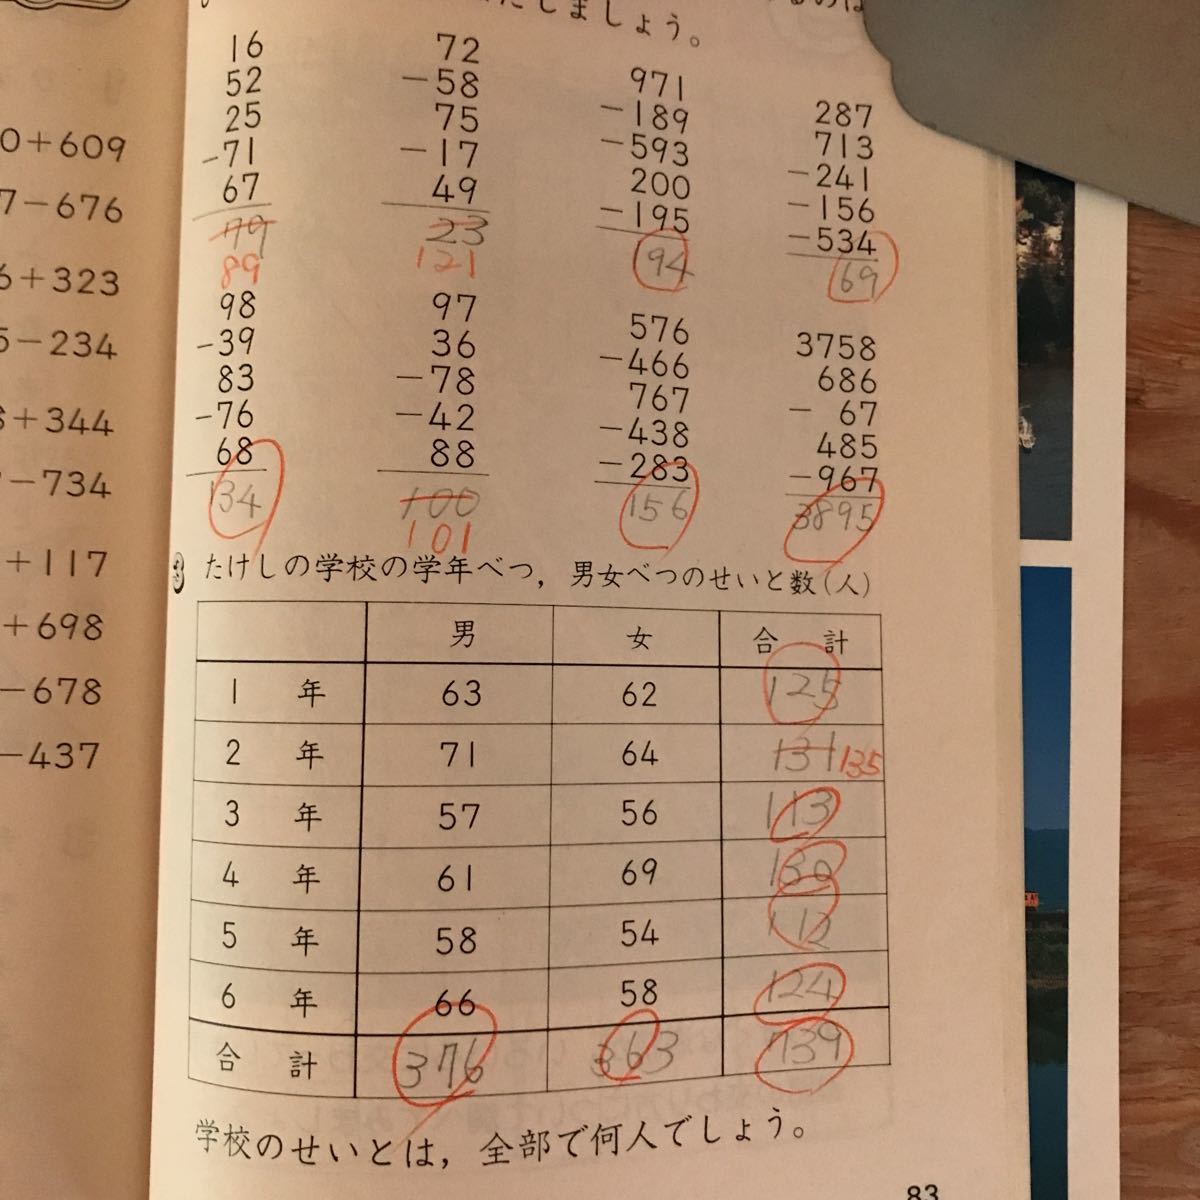 たしましょう。
0+609
7-676
6+323
5-234
8+344
-734
+117
+698
-678
-437
16
52
25
-71
67
179
89
72
-58
75
-17
49
23
121
971
-189
-593
200
-195
194
287
713
-241
-156
-534
69
98
-39
83
-76
68
134
97
36
-78
-42
88
100
101
576
-466
767
-438
-283
156
3758
686
- 67
485
-967
3895
3 たけしの学校の学年べつ，男女べつのせいと数(人)
男 女 合計
1年 63 62 125
2年 71 64 131 135
3年 57 56 113
4年 61 69 130
5年 58 54 112
6年 66 58 124
合計 376 363 739
学校のせいとは，全部で何人でしょう。
83